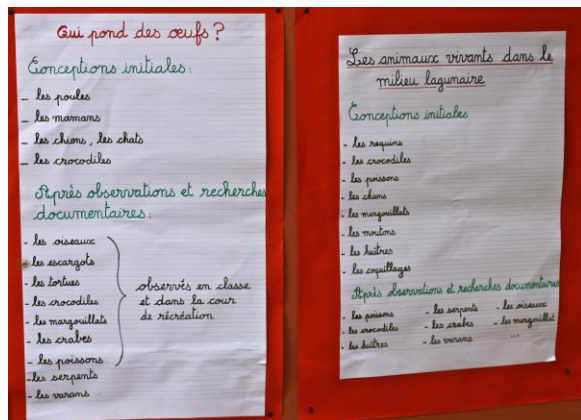 Qui pond des œufs ?
Conceptions initiales :
_ les poules
_ les mamans
_ les chiens, les chats
_ les crocodiles
Après observations et recherches
documentaires :
- les oiseaux
- les escargots
- les tortues
- les crocodiles
- les margouillats
- les crabes
- les poissons
- les serpents
- les varans ...
observés en classe
et dans la cour
de récréation
Les animaux vivants dans le
milieu lagunaire
Conceptions initiales
- les requins
- les crocodiles
- les poissons
- les chiens
- les margouillats
- les moutons
- les huîtres
- les coquillages
Après observations et recherches documentaires
- les poissons - les serpents - les oiseaux
- les crocodiles - les crabes - les margouillat
- les huîtres - les varans ...